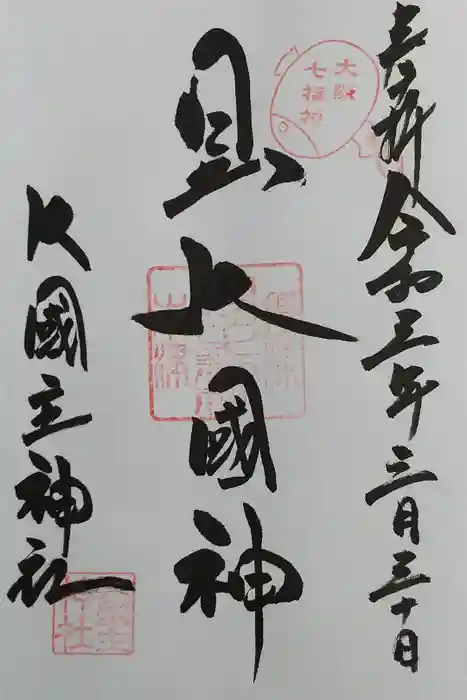 奉拝 令和三年三月三十日
大阪
七福神
大國神
大國主神社